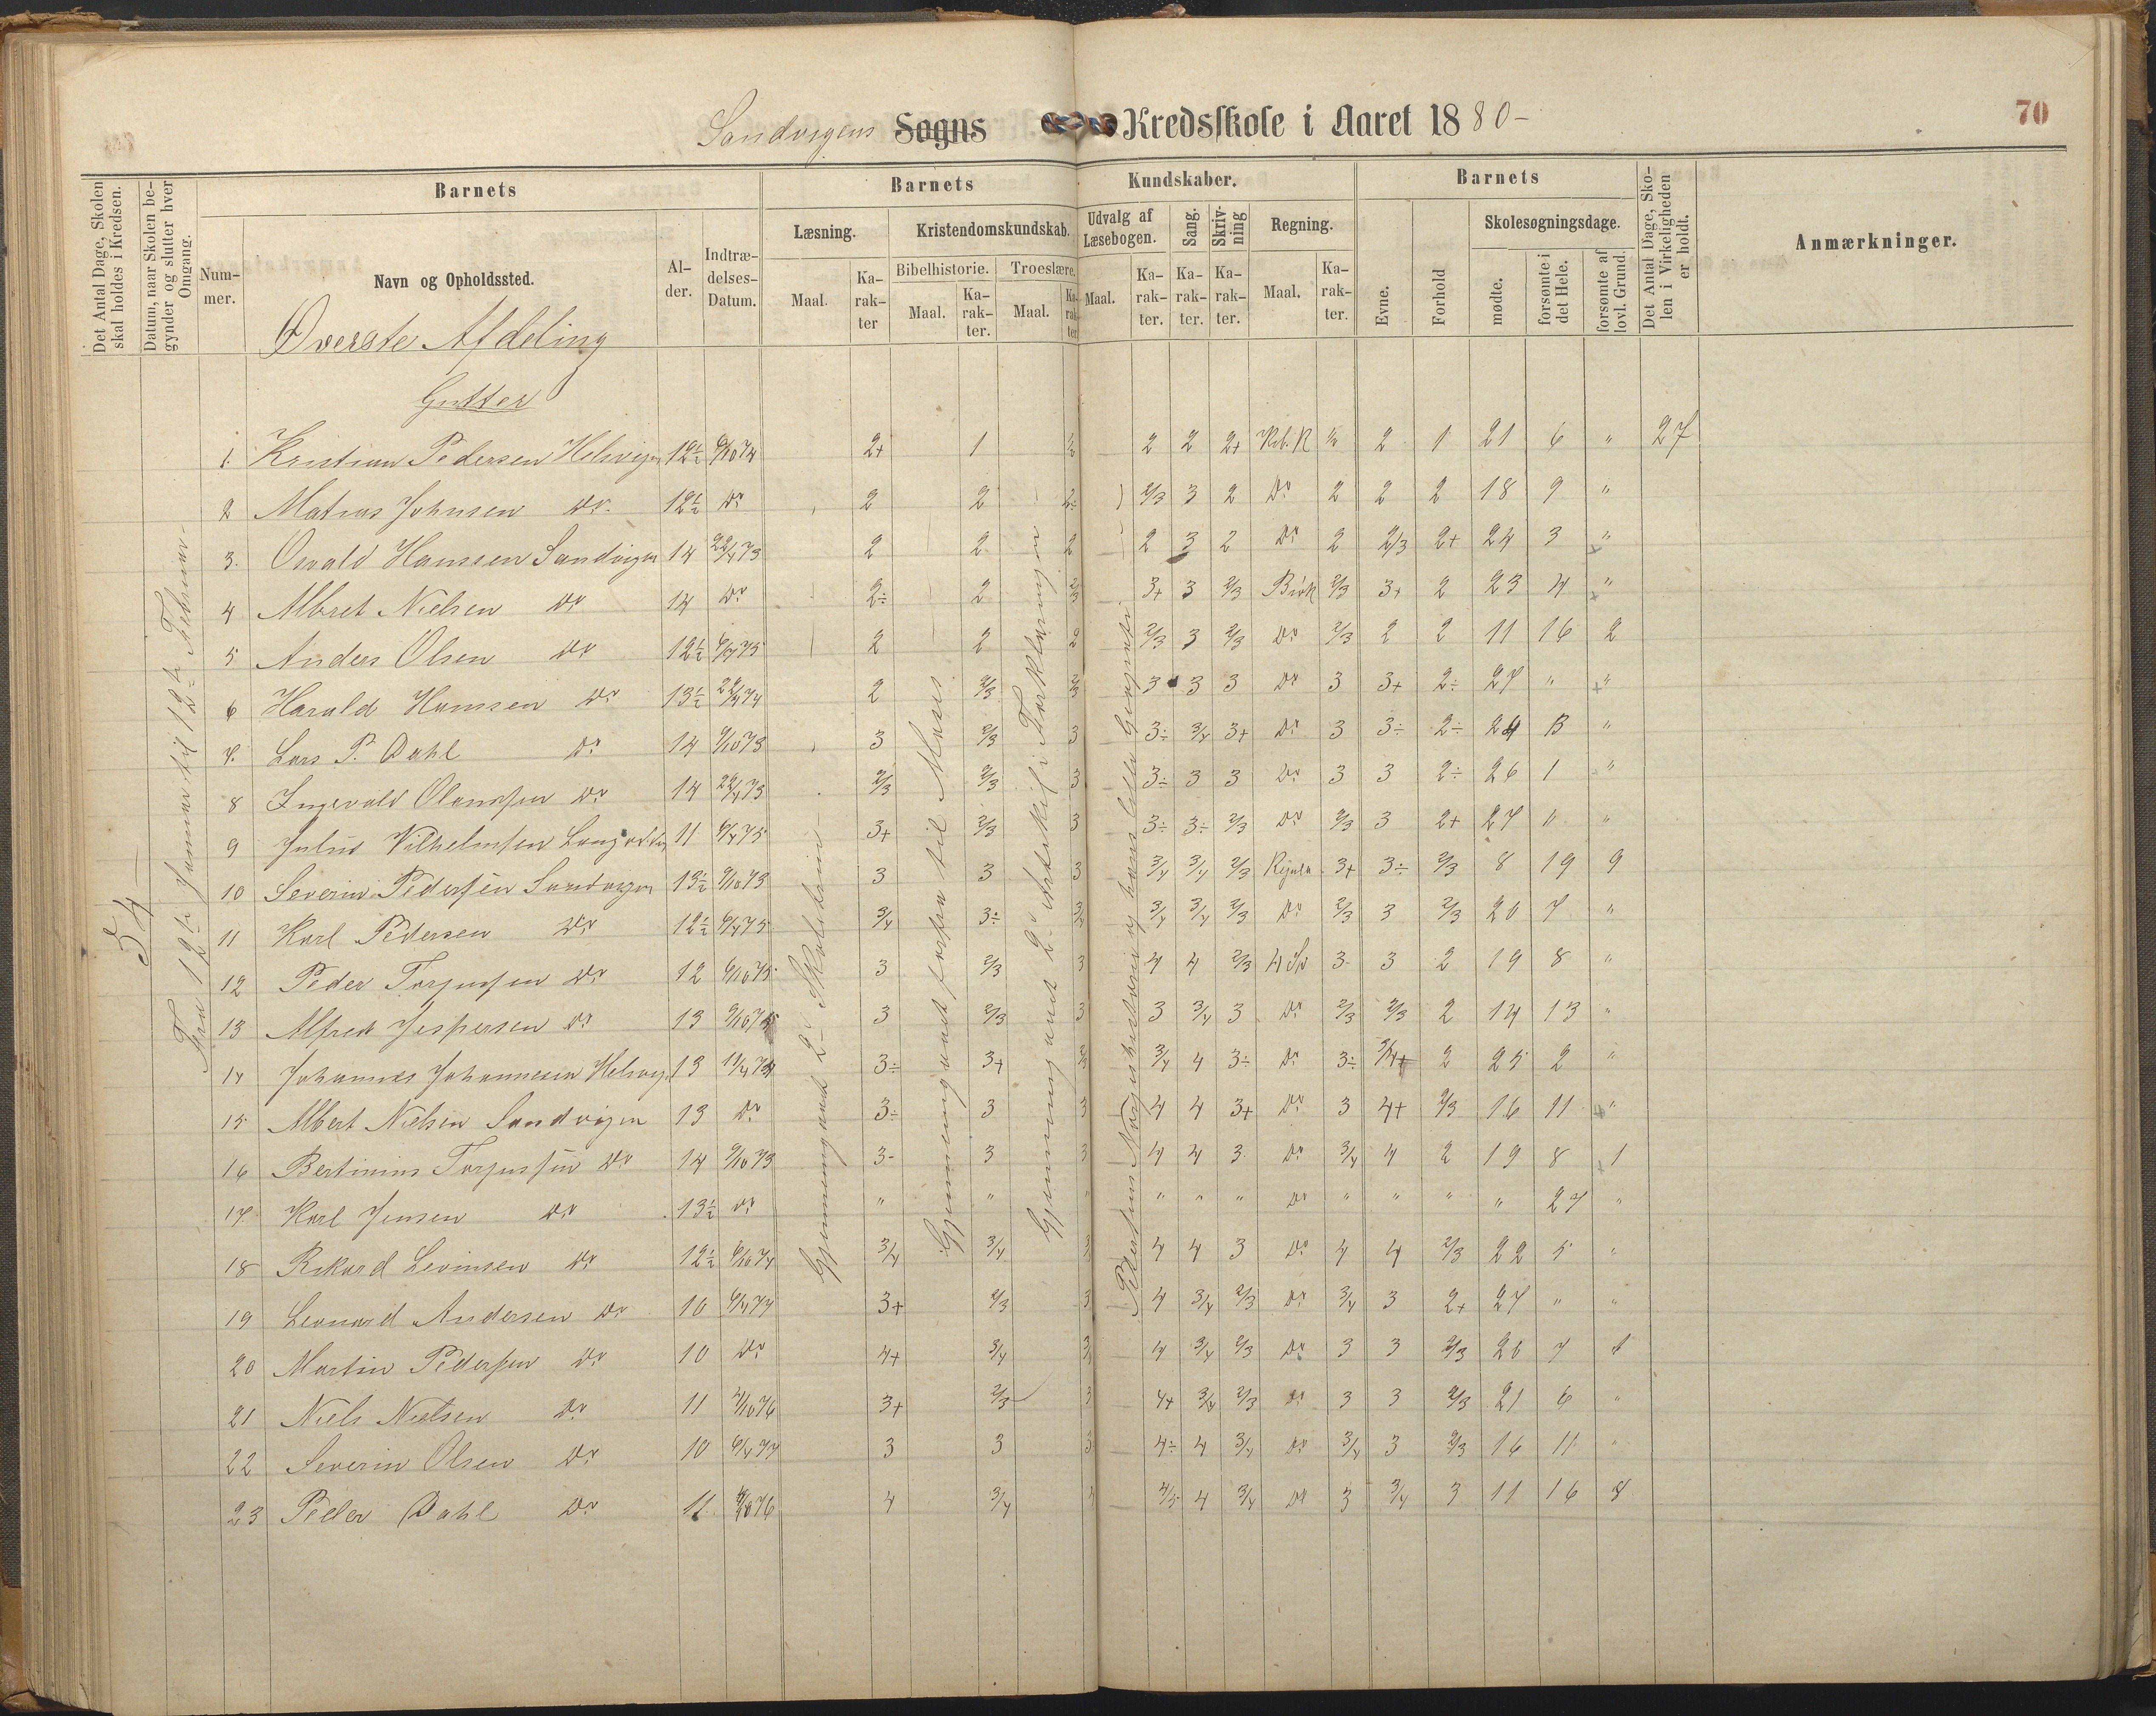 Sandvigens Sogns Kredsskole i Aaret 1880-
70
Det Antal Dage, Skolen skal holdes i Kredsen.
Datum, naar Skolen begynder og slutter hver Omgang.
Barnets
Barnets
Kundskaber.
Barnets
Det Antal Dage, Skolen i Virkeligheden er holdt.
Anmærkninger.
Nummer.
Navn og Opholdssted.
Alder.
Indtrædelses-Datum.
Læsning.
Kristendomskundskab.
Udvalg af Læsebogen.
Sang.
Skrivning
Regning.
Evne.
Forhold
Skolesøgningsdage.
Bibelhistorie.
Troeslære.
Maal.
Karakter
Maal.
Karakter.
Maal.
Karakter.
Maal.
Karakter.
Karakter.
Karakter.
Maal.
Karakter.
mødte.
forsømte i det Hele.
forsømte af lovl. Grund.
Øverste Afdeling
Gutter
54
Fra 12te Januar til 12te Februar
Gjennemgaaet
Gjennemgaaet forfra til Moses
Gjennemgaaet 2den Artikel i Forklaringen
1. Kristian Pedersen Helsvigen 12½ 6/10 74 2+ 1 ½ 2 2 2+ ½ 2 1 21 6 " 27
2 Matias Johnsen Do. 12½ Do 2 2 2÷ 2/3 3 2 Do 2 2 2 18 9 "
3. Osvald Hansen Sandvigen 14 22/4 73 2 2 2 2 3 2 Do 2 2/3 2+ 24 3 "
4 Albret Nielsen Do 14 Do 2÷ 2 2/3 3+ 3 2/3 Brøk 2/3 3+ 2 23 4 "
5 Anders Olsen Do 12½ 6/4 75 2 2 2 2/3 3 2/3 Do 2/3 2 2 11 16 2
6 Harald Hansen Do 13½ 22/4 74 2 2/3 2/3 3 3 3 Do 3 3+ 2÷ 27 " "
7. Lars P. Dahl Do 14 9/10 73 3 2/3 3 3÷ 3/4 3+ Do 3 3÷ 2÷ 24 3 "
8 Ingevald Olaussen Do 14 22/4 73 2/3 2/3 3 3÷ 3 3 Do 3 3 2÷ 26 1 "
9 Julius Vilhelmsen 11 6/4 75 3+ 2/3 3 3÷ 3÷ 2/3 Do 2/3 3 2+ 27 " "
10 Severin Pedersen Sandvigen 13½ 9/10 73 3 3 3 3/4 3/4 2/3 3+ 3÷ 2/3 8 19 9
11 Karl Pedersen Do 12½ 6/4 75 3/4 3÷ 3/4 3/4 3/4 2/3 Do 2/3 3 2/3 20 7 "
12 Peder Torjussen Do 12 6/10 75 3 2/3 3 4 4 2/3 3 3 2 19 8 "
13 Alfred Jespersen Do 13 3 2/3 3 3 3/4 3 Do 2/3 2/3 2 14 13 "
14 Johannes Johannesen 13 3÷ 3+ 3/4 4 3÷ Do 3÷ 2 25 2 "
15 Albert Nielsen Sandvigen 13 Do 3÷ 3 3 4 4 3+ Do 3 4+ 2/3 16 11 "
16 Bertinius Torjussen Do 14 9/10 73 3- 3 3 4 4 3 Do 3/4 4 2 19 8 1
17 Karl Jensen Do 13½ Do " " " " " " Do " " " " 27 "
18 Rikard Levinsen Do 12½ 6/10 74 3/4 3/4 4 4 3 Do 4 4 2/3 22 5 "
19 Leonard Andersen Do 10 6/4 77 3+ 2/3 3 4 3/4 2/3 Do 3/4 3 2+ 27 " "
20 Martin Pedersen Do 10 Do 4+ 3/4 3/4 4 3/4 2/3 Do 3 3 2/3 20 7 1
21 Niels Nielsen Do 11 3+ 2/3 3 4+ 3/4 2/3 Do 3 3 2/3 21 6 "
22 Severin Olsen Do 10 6/4 77 3 3 3 4÷ 4 3/4 Do 3/4 3 2/3 16 11 "
23 Peder Dahl Do 11 4 3/4 4 4/5 4 3/4 Do 3 3/4 3 11 16 8